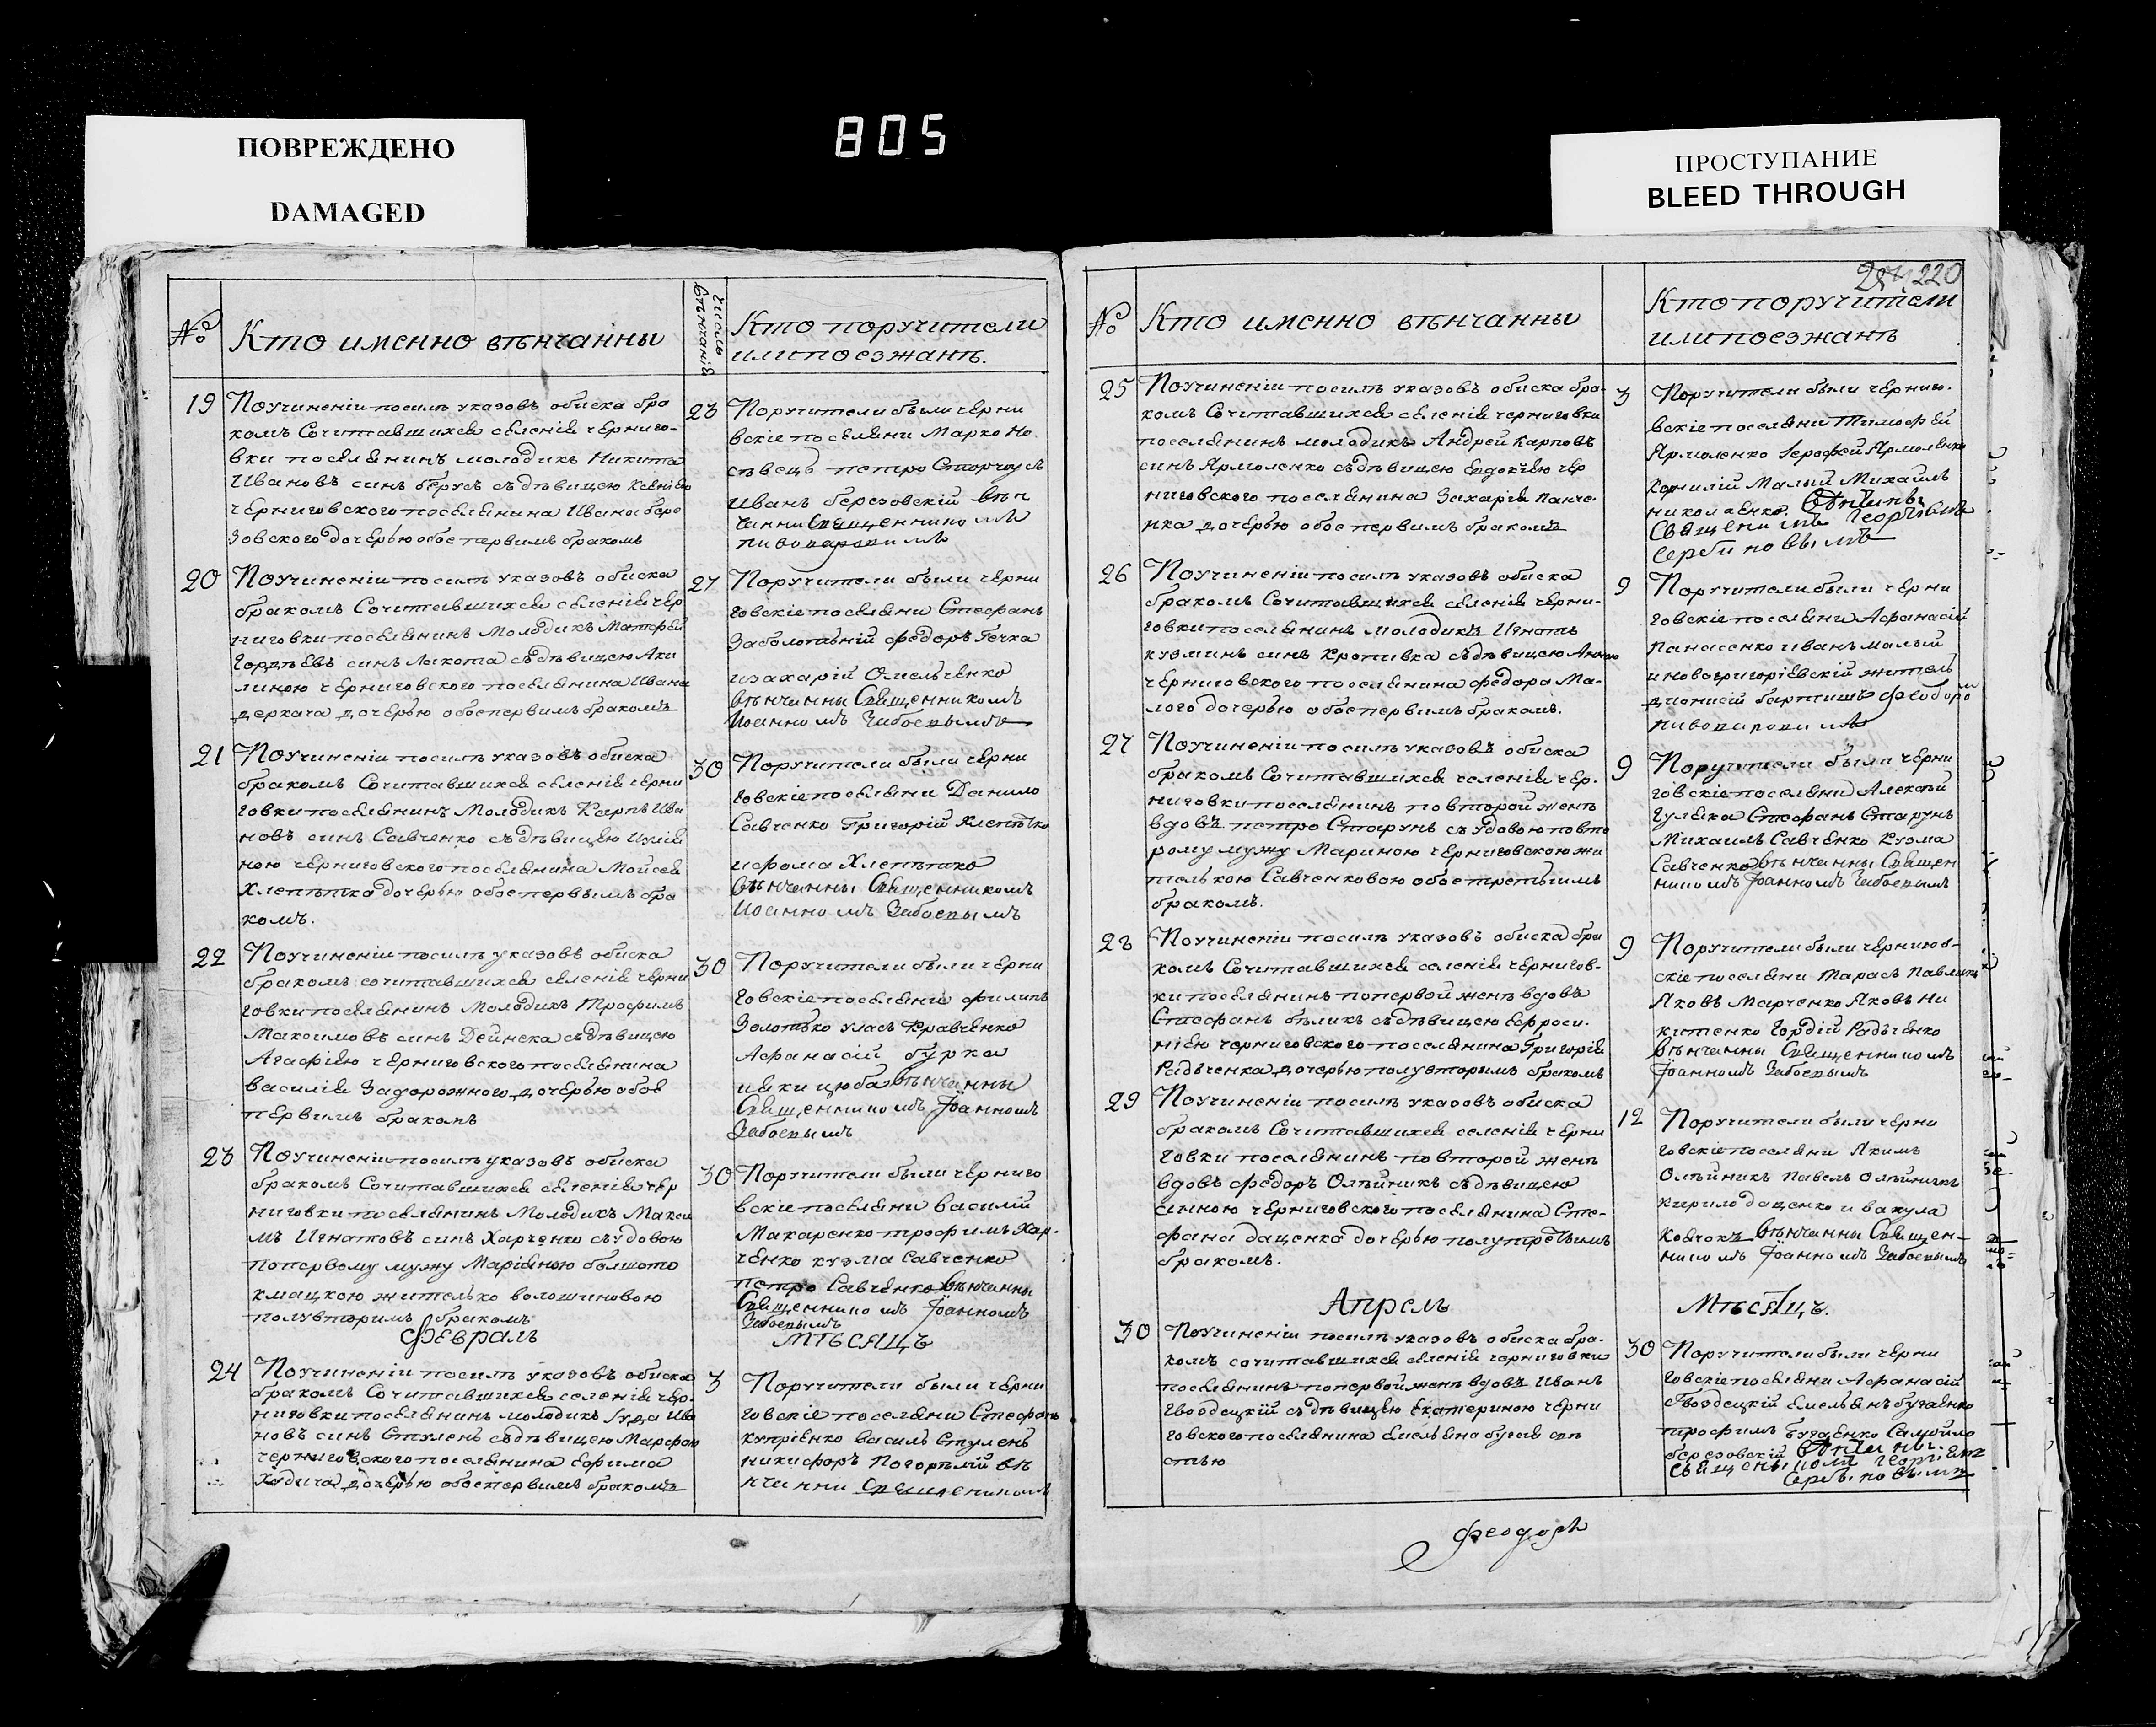 ПОВРЕЖДЕНО
DAMAGED
805
ПРОСТУПАНИЕ
BLEED THROUGH
№
Кто именно вѣнчанны
число вѣнчанія
Кто поручители
или поезжанѣ.
19
Поучиненіи посилѣ указовъ обиска бра
комъ Сочитавшихся селенія черниго-
вки поселянинъ молодикъ Никита
Ивановъ синъ берусъ съ дѣвицею Ксеніею
черниговского поселянина Ивана бере
зовского дочерью обое первимъ бракомъ
23
Поручители были черни
вскіе поселяни Марко Но
сѣвецъ петро Сторчусъ
Иванъ березовскій вѣн
чанни Священникомъ
пивоваровимъ
20
Поучиненіи посилѣ указовъ обиска
бракомъ Сочитавшихся селенія чер
ниговки поселянинъ Молодикъ Матфей
Гордѣевъ синъ Лихота съ дѣвицею Аки
линою черниговского поселянина Ивана
деркача дочерью обое первимъ бракомъ
27
Поручители были черни
говскіе поселяни Стефанъ
Заболотьній федоръ Гечка
и захарій Омельченко
вѣнчанны Священникомъ
Иоанномъ Забоевымъ
21
Поучиненіи посилѣ указовъ обиска
бракомъ Сочитавшихся селенія черни
говки поселянинъ Молодикъ Карпъ Ива
новъ синъ Савченко съ дѣвицею Иулія
ною черниговского поселянина Мойсея
Хлепѣтка дочерью обое первымъ бра
комъ.
30
Поручители были черни
говскіе поселяни Данило
Савченко Григорій Хлепѣтко
и фома Хлепѣтко
вѣнчанны Священникомъ
Иоанномъ Забоевымъ
22
Поучиненіи посилѣ указовъ обиска
бракомъ сочитавшихся селенія черни
говки поселянинъ Молодикъ Трофимъ
Максимовъ синъ Дейнека съ дѣвицею
Агафіею черниговского поселянина
василія Задорожного дочерью обое
первимъ бракомъ
30
Поручители были черни
говскіе поселяни филипъ
Золотько уласъ Кравченко
Афанасій бурка
и яки цюба вѣнчанны
Священникомъ Іоанномъ
Забоевымъ
23
Поучиненіи посилѣ указовъ обиска
бракомъ Сочитавшихся селенія чер
ниговки поселянинъ Молодикъ Макси
мъ Игнатовъ синъ Харченко съ удовою
попервому мужу Маріяною болшото
кмацкою жителько волошиновою
полувторимъ бракомъ
30
Поручители были черниго
вскіе поселяни василій
Макаренко трофимъ Хар-
ченко кузма Савченко
петро Савченко вѣнчанны
Священникомъ Іоанномъ
Забоевымъ
Февраль
мѣсяцъ
24
Поучиненіи посилѣ указовъ обиска
бракомъ Сочитавшихся селенія чер-
ниговки поселянинъ молодикъ Іуда Ива
новъ синъ Ступень съ дѣвицею Марфою
черниговского поселянина Ефима
Ходича дочерью обое первимъ бракомъ
3
Поручители были черни
говскіе поселяни Стефанъ
купріенко василь Ступень
никифоръ Погорѣлій вѣ
нчанни Священикомъ
220
№
Кто именно вѣнчанны
Кто поручители
или поезжанѣ
25
Поучиненіи посилѣ указовъ обиска бра-
комъ Сочитавшихся селенія черниговки
поселянинъ молодикъ Андрей карповъ
синъ Ярмоленко съ дѣвицею Евдокіею чер
ниговского поселянина Захарія Панче-
нка дочерью обое первимъ бракомъ
3
Поручители были черниго-
вскіе поселяни Тимофей
Ярмоленко Іерофей Ярмоленко
Корнилій Малий Михайлъ
николаенко.
Священикомъ Георгіемъ
Сербиновымъ
26
Поучиненіи посилѣ указовъ обиска
бракомъ Сочитавшихся селенія черни-
говки поселянинъ молодикъ Игнатъ
кузминъ синъ Кропивка съ дѣвицею Анною
черниговского поселянина федора Ма-
лого дочерью обое первимъ бракомъ.
9
Поручители были черни
говскіе поселяни Афанасій
Панасенко иванъ малый
и новогригоріевскій житель
діонисій бартишъ Феодоро
пивоваровимъ
27
Поучиненіи посилѣ указовъ обиска
бракомъ Сочитавшихся селенія чер-
ниговки поселянинъ повторой женѣ
вдовъ петро Старунъ съ удовою повто
рому мужу Мариною черниговскою жи
телькою Савченковою обое третьимъ
бракомъ.
9
Поручители были черни
говскіе поселяни Алексѣй
Гуляка Стефанъ Старунъ
Михаилъ Савченко Кузма
Савченко вѣнчанны Священ
никомъ Іоанномъ Забоевымъ
28
Поучиненіи посилѣ указовъ обиска бра
комъ Сочитавшихся селенія чернигов-
ки поселянинъ попервой женѣ вдовъ
Стефанъ бѣликъ съ дѣвицею Ефроси-
ніею черниговского поселянина Григорія
Радченка дочерью полувторымъ бракомъ
9
Поручители были чернигов-
скіе поселяни Тарасъ Павленко
Яковъ Марченко Яковъ Ни
китенко Гордій Радченко
вѣнчанны Священникомъ
Іоанномъ Забоевымъ
29
Поучиненіи посилѣ указовъ обиска
бракомъ Сочитавшихся селенія черни
говки поселянинъ повторой женѣ
вдовъ федоръ Олѣйникъ съ дѣвицею
анною черниговского поселянина Сте-
фана даценка дочерью полутретымъ
бракомъ.
12
Поручители были черни
говскіе поселяни Якимъ
Олѣйникъ Павелъ Олѣйникъ
кирило даценко и вакула
коячокъ вѣнчанны Священ-
никомъ Іоанномъ Забоевымъ
Апрель
Мѣсяцъ.
30
Поучиненіи посилѣ указовъ обиска бра-
комъ сочитавшихся селенія черниговки
поселянинъ попервой женѣ вдовъ Иванъ
Гвоздецкій съ дѣвицею Екатериною черни
говского поселянина Емельяна бугая
30
Поручители были черни
говскіе поселяни Афанасій
Гвоздецкій Емельянъ бугаенко
трофимъ бугаенко Самойло
березовскій
Священикомъ Георгіемъ
Сербиновымъ
Феодоръ